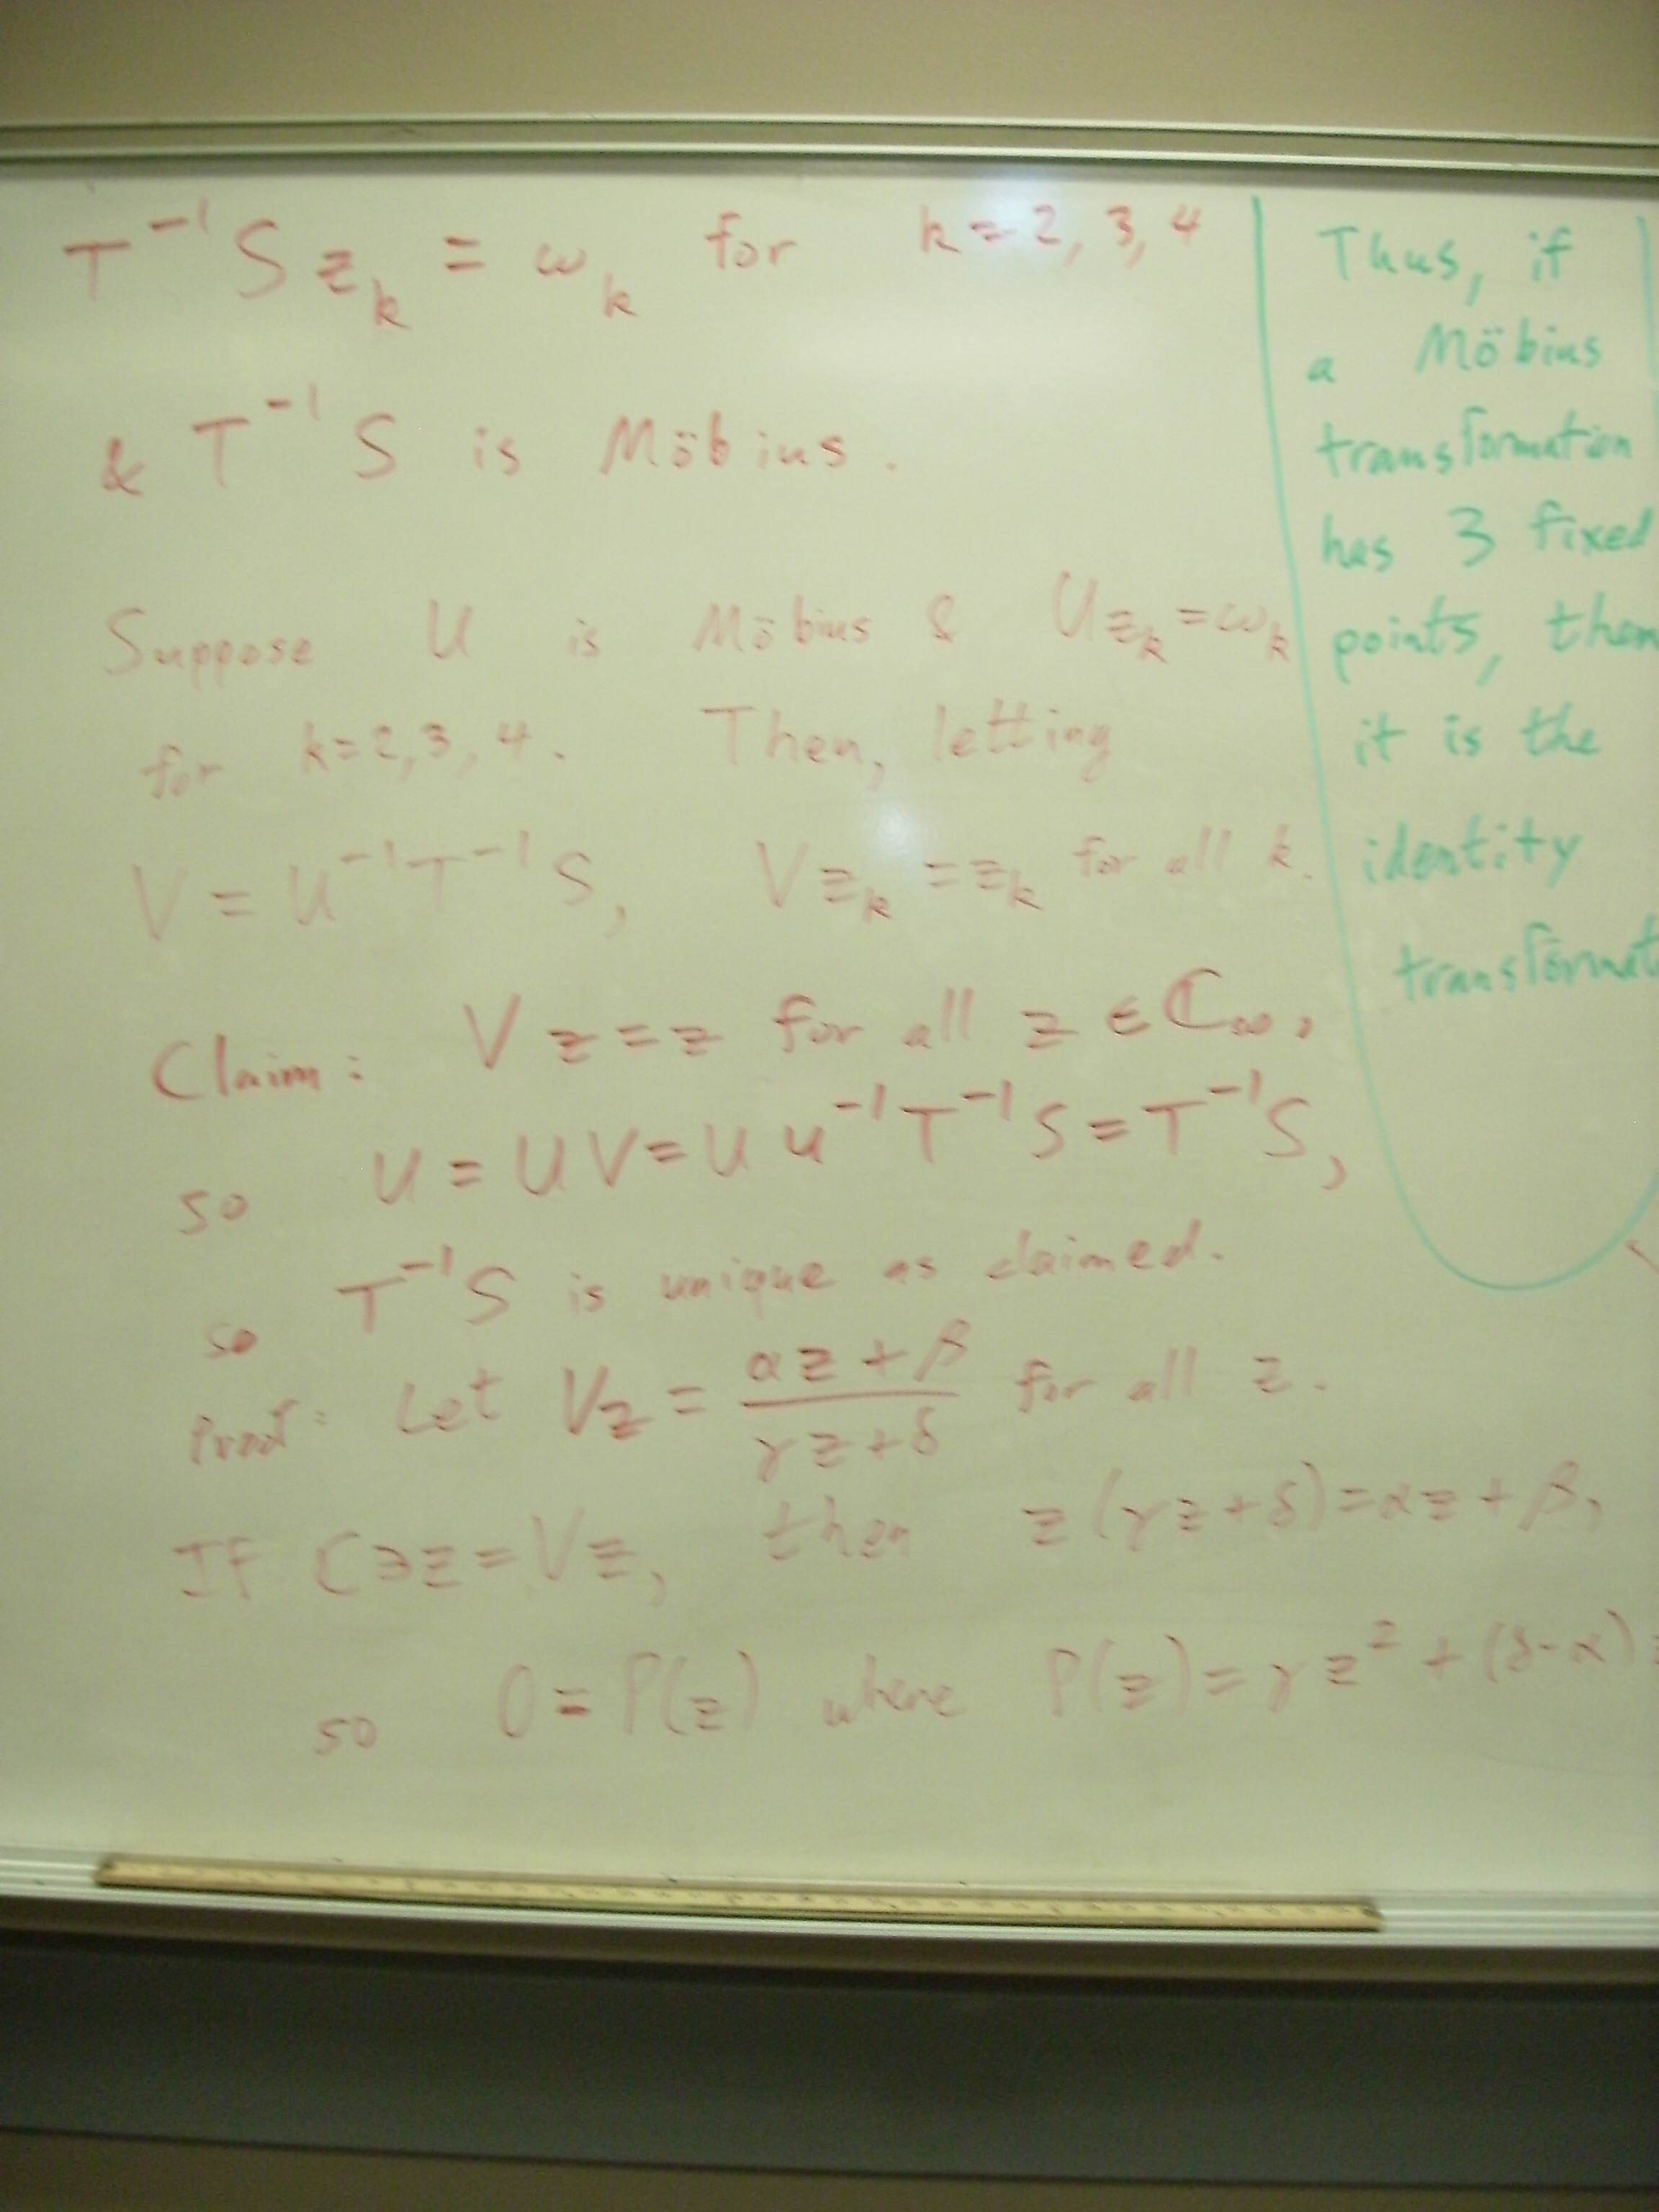 T⁻¹S z_k = ω_k for k = 2, 3, 4
& T⁻¹S is Möbius.
Suppose U is Möbius & U z_k = ω_k
for k = 2, 3, 4. Then, letting
V = U⁻¹T⁻¹S, V z_k = z_k for all k.
Claim: V z = z for all z ∈ ℂ_∞,
so U = U V = U U⁻¹T⁻¹S = T⁻¹S,
so T⁻¹S is unique as claimed.
Proof: Let Vz = (αz + β)/(γz + δ) for all z.
If ℂ ∋ z = Vz, then z(γz + δ) = αz + β,
so 0 = P(z) where P(z) = γz² + (δ - α)
Thus, if
a Möbius
transformation
has 3 fixed
points, then
it is the
identity
transformat